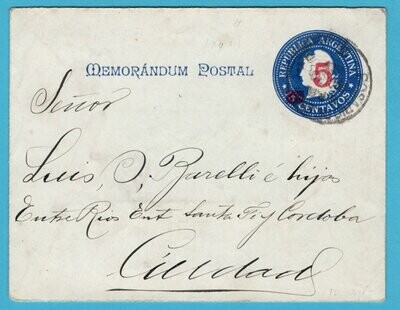 REPÚBLICA ARGENTINA
5
CENTAVOS
MEMORÁNDUM POSTAL
Señor
Luis, O, Barelli é hijos
Entre Rios Ent Santa Fé y Cordoba
Ciudad